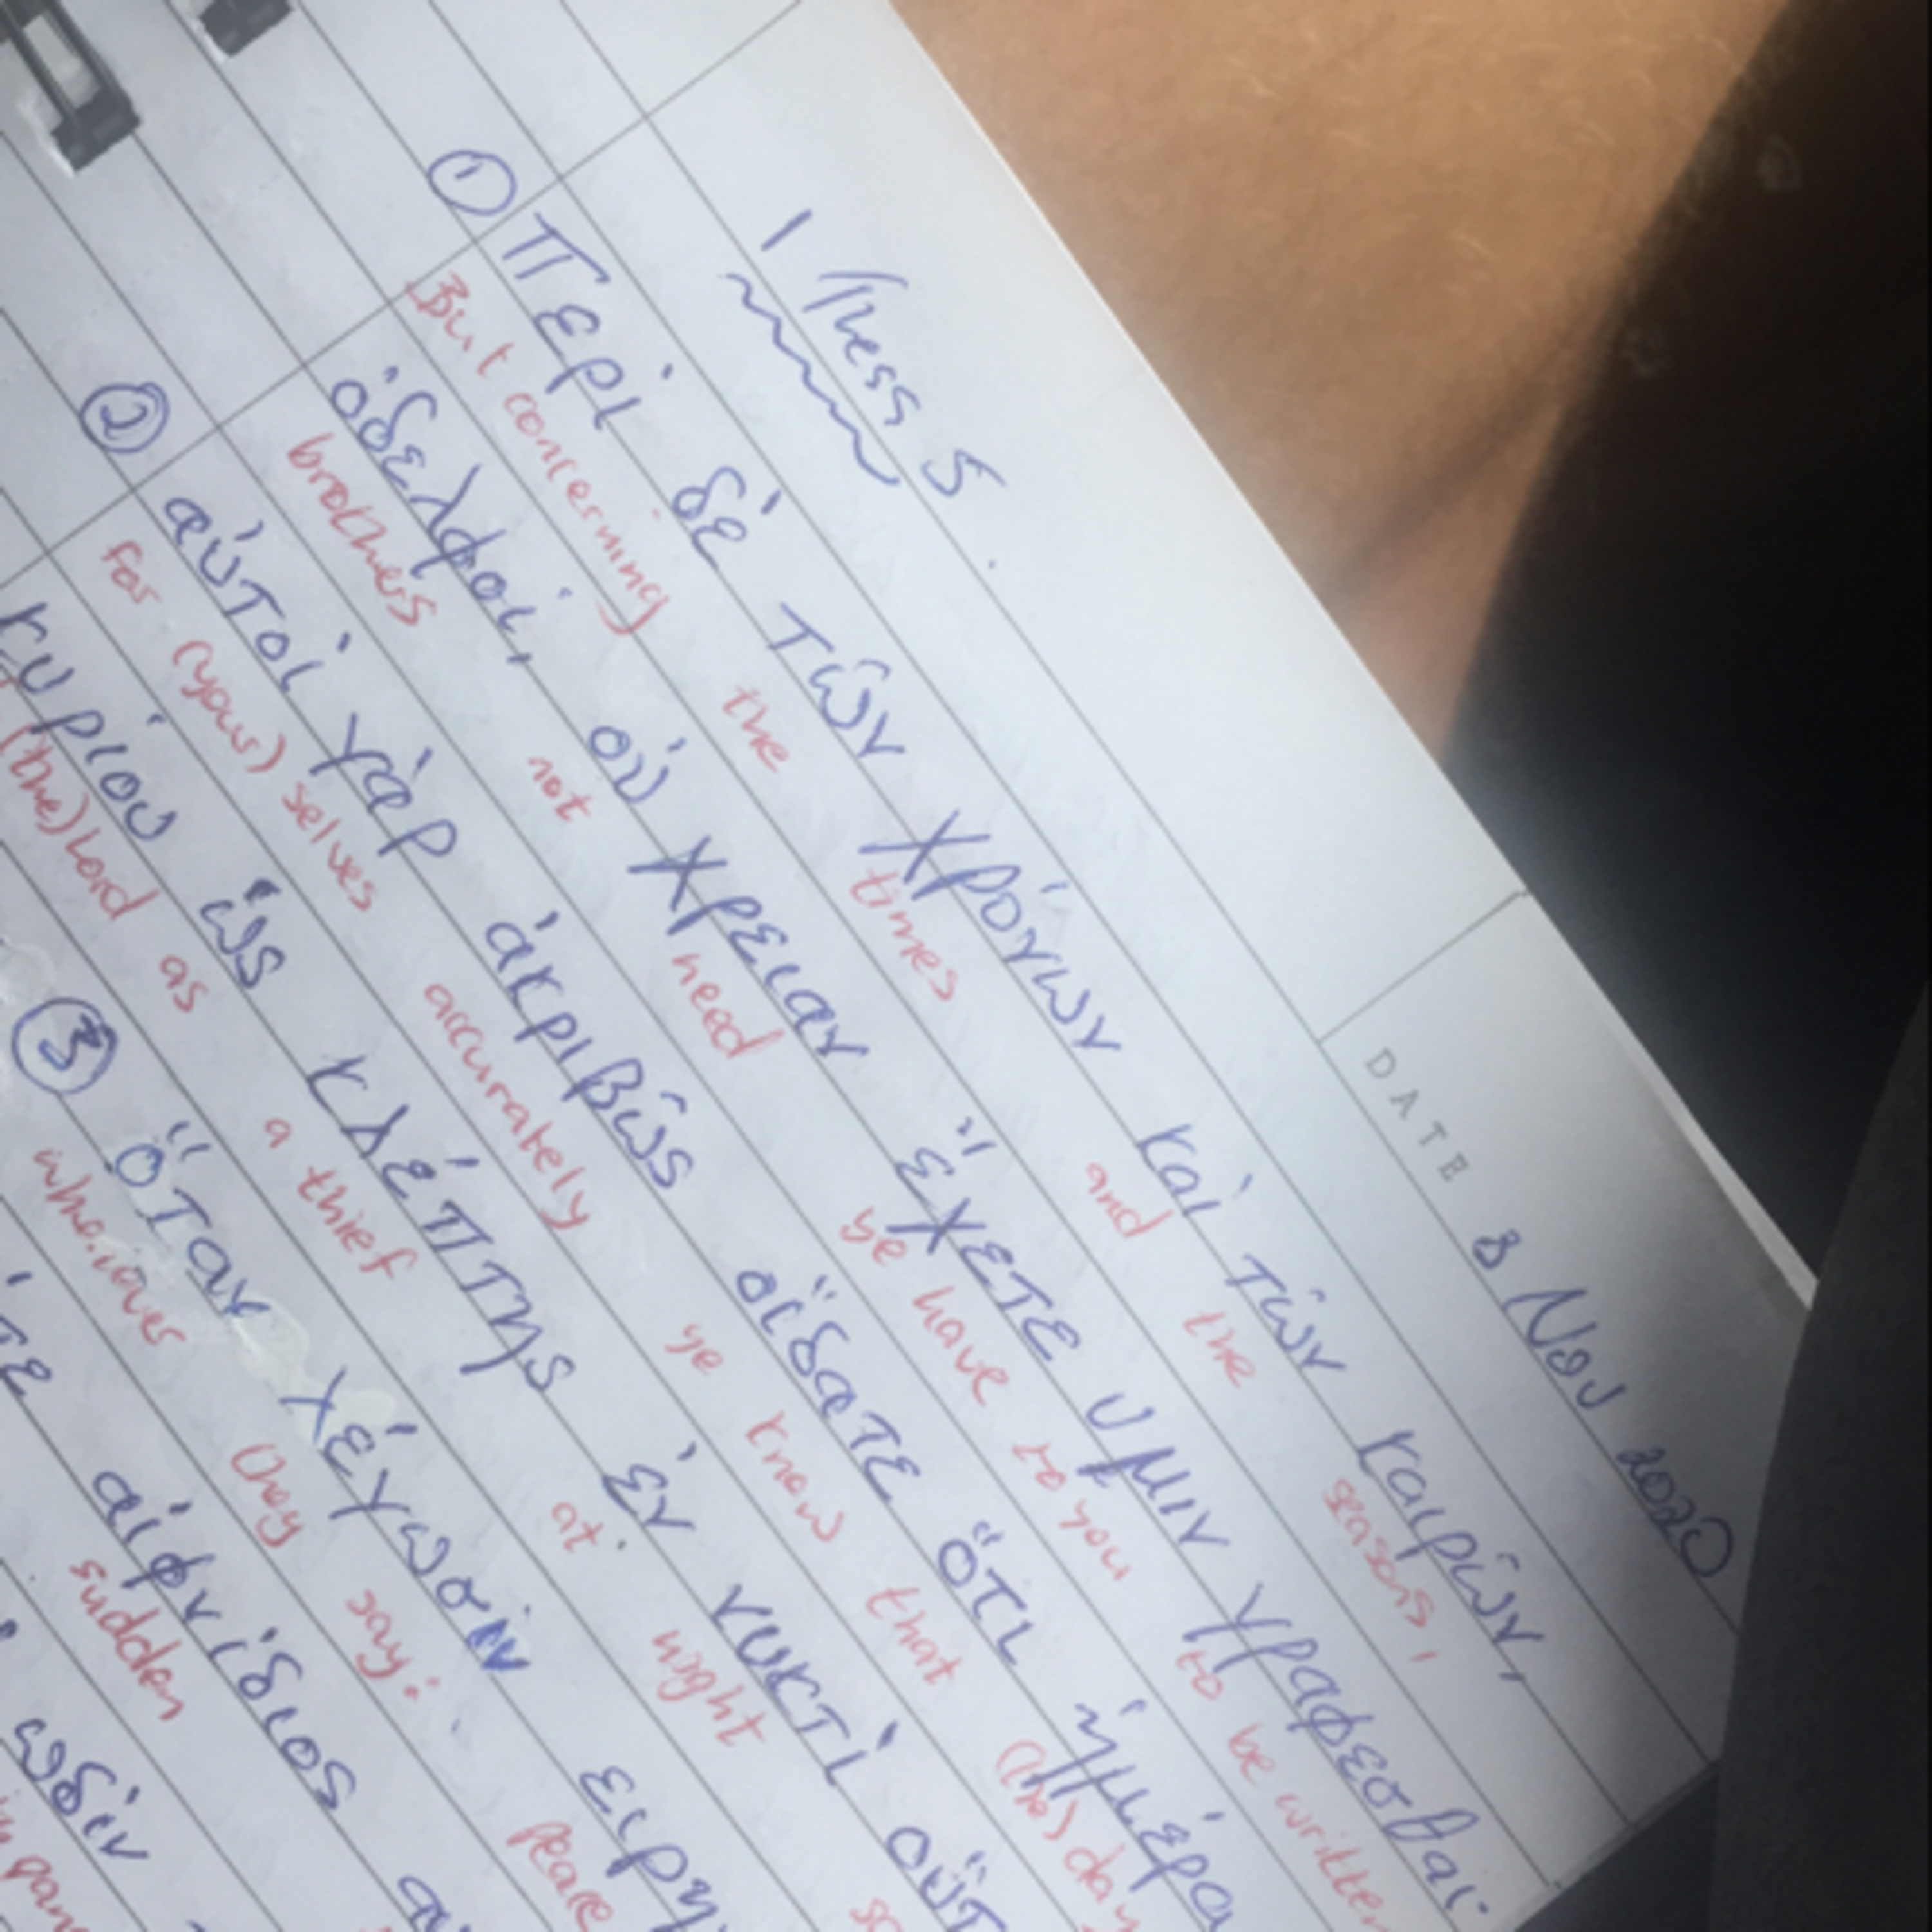 DATE 8 Nov 2020
1 Thess 5
① Περὶ δὲ τῶν χρόνων καὶ τῶν καιρῶν,
But concerning the times and the seasons,
ἀδελφοί, οὐ χρειαν ἔχετε υμιν γραφεσθαι·
brothers not need ye have to you to be written
② αὐτοὶ γὰρ ἀκριβῶς οἴδατε ὅτι ἡμέρα
For (your) selves accurately ye know that (the) day
κυρίου ὡς κλέπτης ἐν νυκτὶ οὕτ
(the) Lord as a thief at night so
③ ὅταν λέγωσιν ειρη
whenever they say: peace
αἰφνίδιος
sudden
ωδὶν